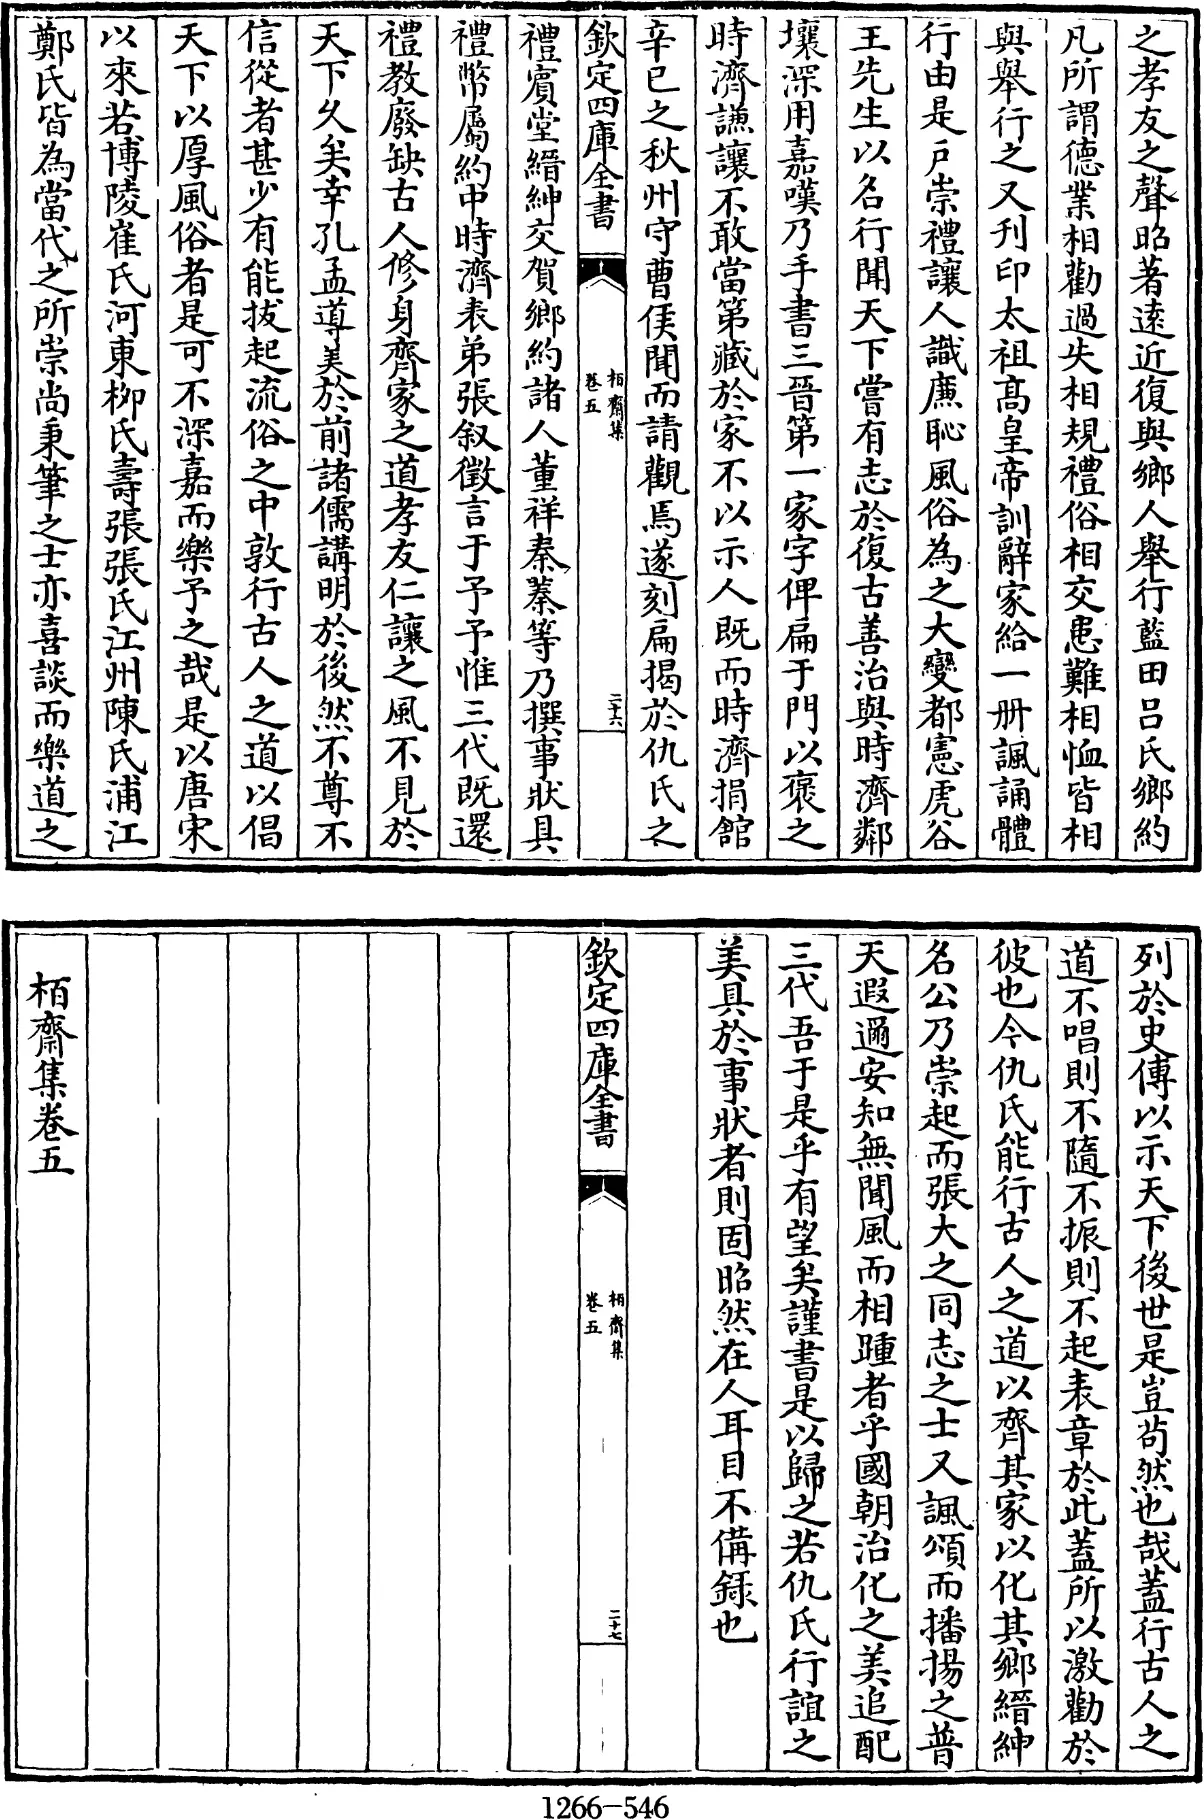 之孝友之聲昭著遠近復與鄉人舉行藍田吕氏鄉約
凡所謂德業相勸過失相規禮俗相交患難相恤皆相
與舉行之又刋印太祖髙皇帝訓辭家給一册諷誦體
行由是戸崇禮讓人識廉恥風俗為之大變都憲虎谷
王先生以名行聞天下嘗有志於復古善治與時濟鄰
壤深用嘉嘆乃手書三晉第一家字俾扁于門以褒之
時濟謙讓不敢當第藏於家不以示人既而時濟捐館
辛巳之秋州守曹侯聞而請觀焉遂刻扁揭於仇氏之
欽定四庫全書
栢齋集
卷五
二十六
禮賓堂縉紳交賀鄉約諸人董祥秦蓁等乃撰事狀具
禮幣屬約中時濟表弟張叙徵言于予予惟三代既還
禮教廢缺古人修身齊家之道孝友仁讓之風不見於
天下久矣幸孔孟導美於前諸儒講明於後然不尊不
信從者甚少有能拔起流俗之中敦行古人之道以倡
天下以厚風俗者是可不深嘉而樂予之哉是以唐宋
以來若博陵崔氏河東柳氏壽張張氏江州陳氏浦江
鄭氏皆為當代之所崇尚秉筆之士亦喜談而樂道之
列於史傳以示天下後世是豈苟然也哉蓋行古人之
道不唱則不隨不振則不起表章於此蓋所以激勸於
彼也今仇氏能行古人之道以齊其家以化其鄉縉紳
名公乃崇起而張大之同志之士又諷頌而播揚之普
天遐邇安知無聞風而相踵者乎國朝治化之美追配
三代吾于是乎有望矣謹書是以歸之若仇氏行誼之
美具於事狀者則固昭然在人耳目不備録也
欽定四庫全書
栢齋集
卷五
二十七
栢齋集卷五
1266-546